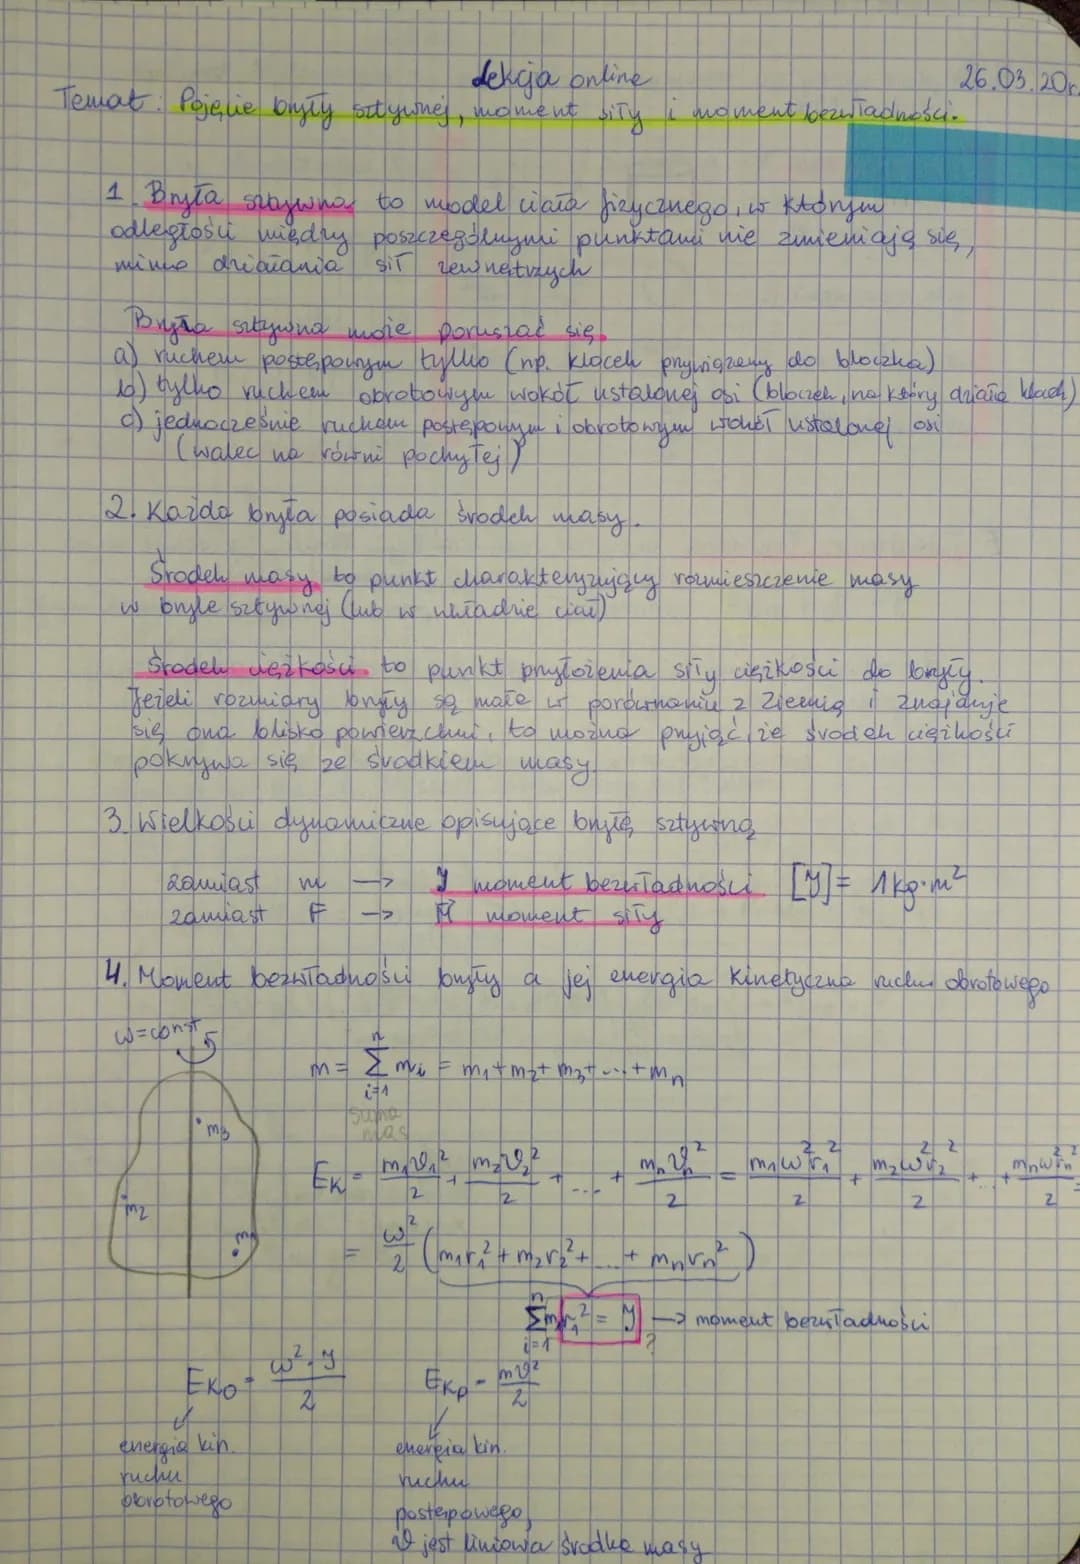 Lekcja online 26.03.20r.
Temat: Pojęcie bryły sztywnej, moment siły i moment bezwładności.
1. Bryła sztywna to model ciała fizycznego, w którym
odległości między poszczególnymi punktami nie zmieniają się,
mimo działania sił zewnętrznych
Bryła sztywna może poruszać się
a) ruchem postępowym tylko (np. klocek przywiązany do bloczka)
b) tylko ruchem obrotowym wokół ustalonej osi (bloczek, na który działa klocek)
c) jednocześnie ruchem postępowym i obrotowym wokół ustalonej osi
(walec na równi pochyłej)
2. Każda bryła posiada środek masy.
Środek masy to punkt charakteryzujący rozmieszczenie masy
w bryle sztywnej (lub w układzie ciał)
Środek ciężkości to punkt przyłożenia siły ciężkości do bryły.
Jeżeli rozmiary bryły są małe w porównaniu z Ziemią i znajduje
się ona blisko powierzchni, to można przyjąć, że środek ciężkości
pokrywa się ze środkiem masy.
3. Wielkości dynamiczne opisujące bryłę sztywną
zamiast m → J moment bezwładności [J] = 1 kg·m²
zamiast F → M moment siły
4. Moment bezwładności bryły a jej energia kinetyczna ruchu obrotowego
ω = const
m = Σ mᵢ = m₁ + m₂ + m₃ + ... + mₙ
n
i=1
suma
mas
m₃
m₂
m₁
Eₖ = m₁v₁²/2 + m₂v₂²/2 + ... + mₙvₙ²/2 = m₁ω²r₁²/2 + m₂ω²r₂²/2 + ... + mₙω²rₙ²/2 =
= ω²/2 (m₁r₁² + m₂r₂² + ... + mₙrₙ²)
n
Σ mᵢr₁² = J → moment bezwładności
i=1 ?
Eₖₒ = ω²·J/2 Eₖₚ = mv²/2
energia kin.
ruchu
obrotowego
energia kin.
ruchu
postępowego,
v jest liniowa środka masy